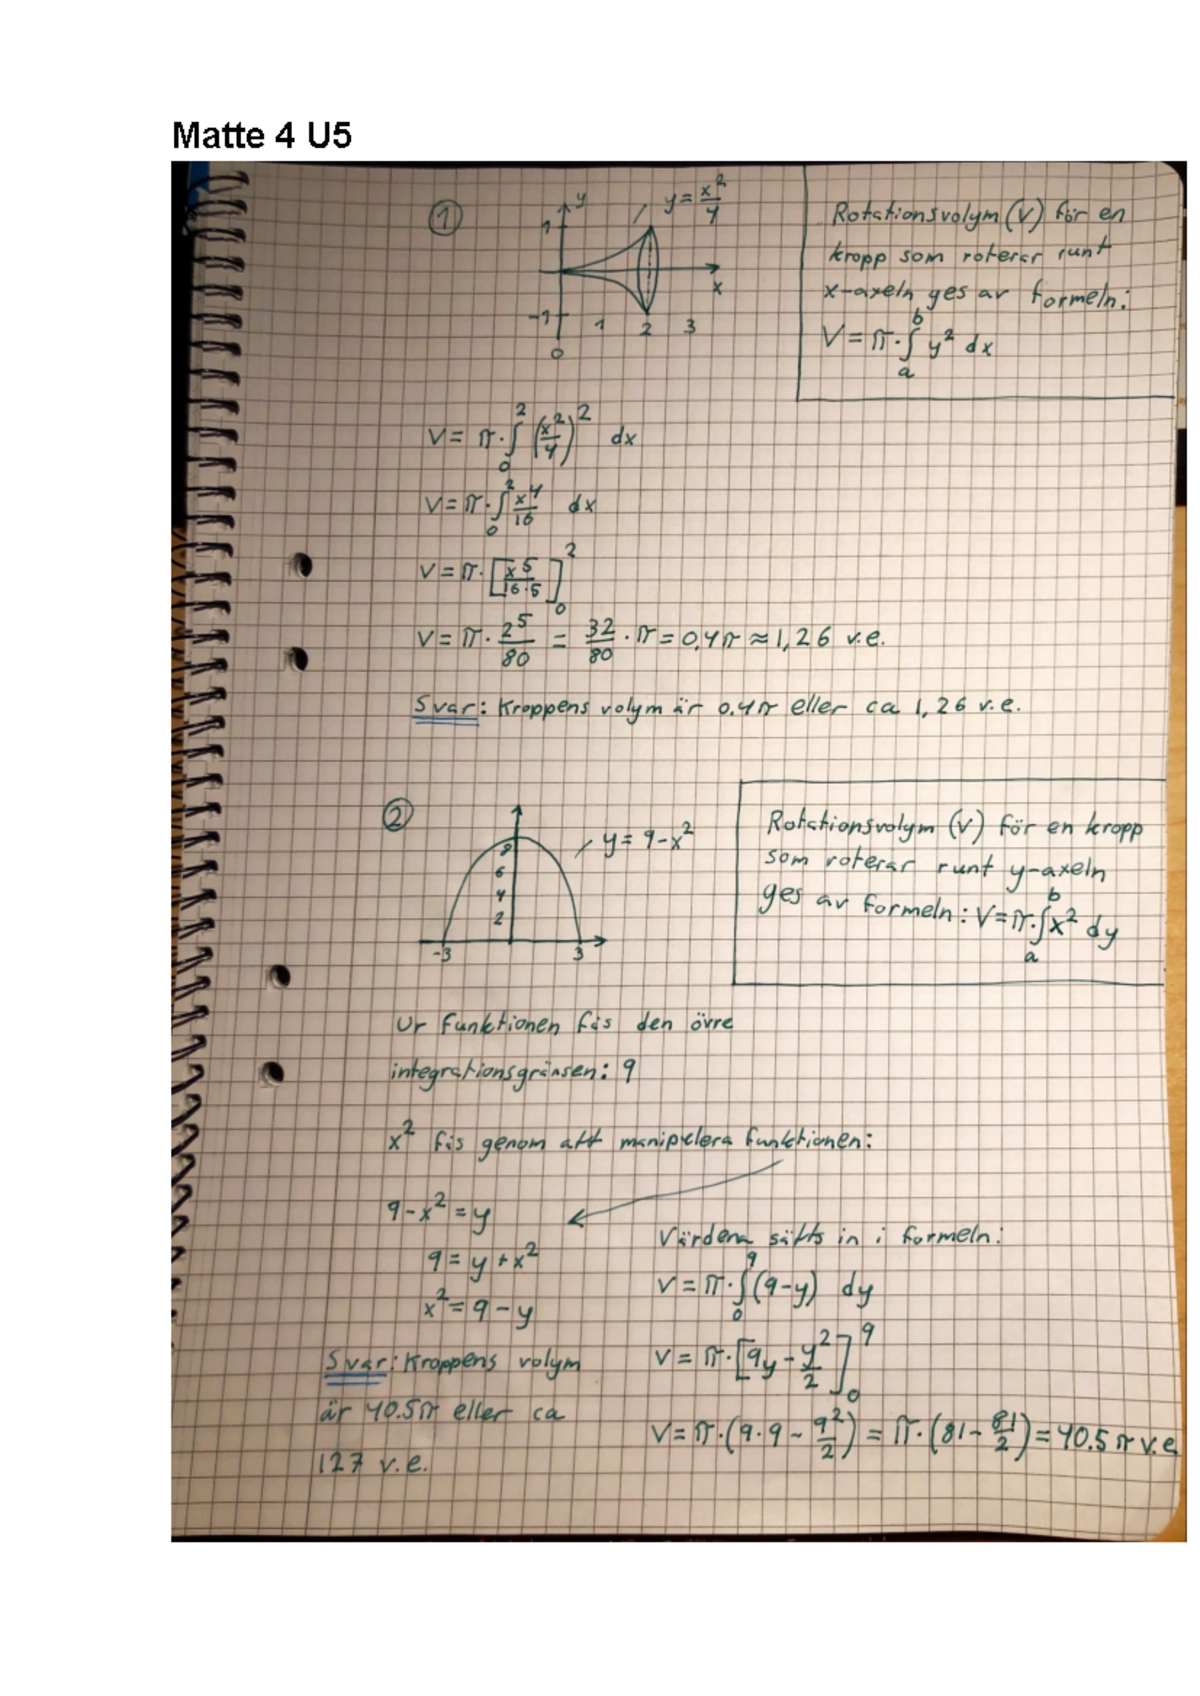 Matte 4 U5
①
y
y = x²/4
1
x
-1
1 2 3
0
Rotationsvolym (V) för en
kropp som roterar runt
x-axeln ges av formeln:
V = π · ∫ₐᵇ y² dx
V = π · ∫₀² (x²/4)² dx
V = π · ∫₀² x⁴/16 dx
V = π · [x⁵/(16·5)]₀²
V = π · 2⁵/80 = 32/80 · π = 0,4π ≈ 1,26 v.e.
Svar: Kroppens volym är 0.4π eller ca 1,26 v.e.
②
y = 9-x²
8
6
4
2
-3 3
Rotationsvolym (V) för en kropp
som roterar runt y-axeln
ges av formeln: V = π · ∫ₐᵇ x² dy
Ur funktionen fås den övre
integrationsgränsen: 9
x² fås genom att manipulera funktionen:
9-x² = y
9 = y + x²
x² = 9 - y
Värdena sätts in i formeln:
V = π · ∫₀⁹ (9-y) dy
V = π · [9y - y²/2]₀⁹
V = π · (9·9 - 9²/2) = π · (81 - 81/2) = 40.5 π v.e
Svar: Kroppens volym
är 40.5π eller ca
127 v.e.